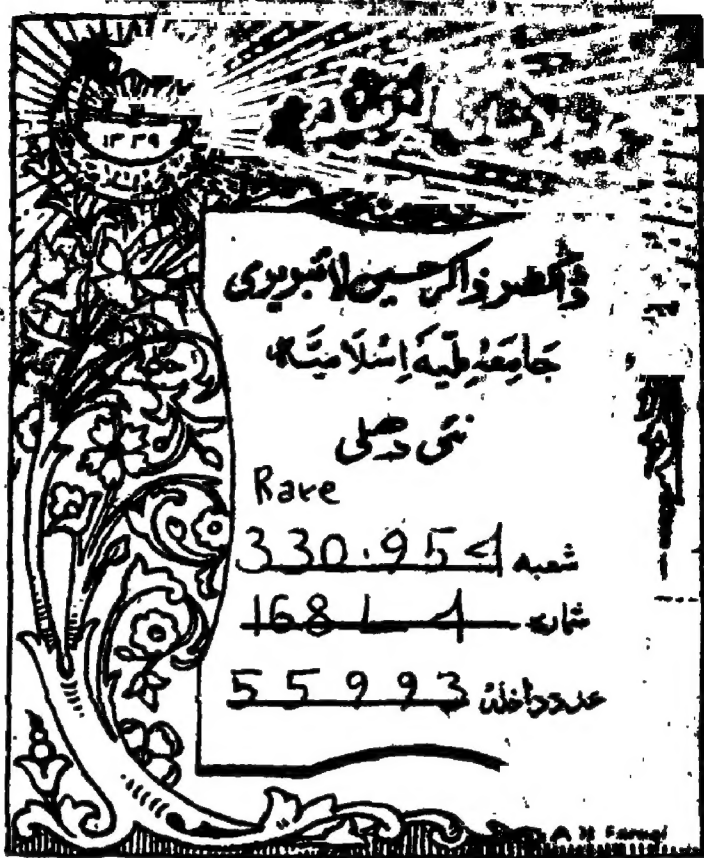 ۱۳۳۹
ڈاکٹر ذاکر حسین لائبریری
جَامِعَہ مِلّیَہ اِسْلَامِیَّہ
نئی دہلی
Rare
شعبہ 330.954
شمارہ 168 L 4
عدد داخلہ 55993